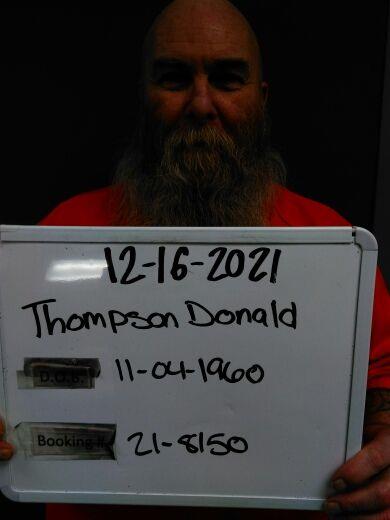 12-16-2021
Thompson Donald
D.O.B. 11-04-1960
Booking # 21-8150